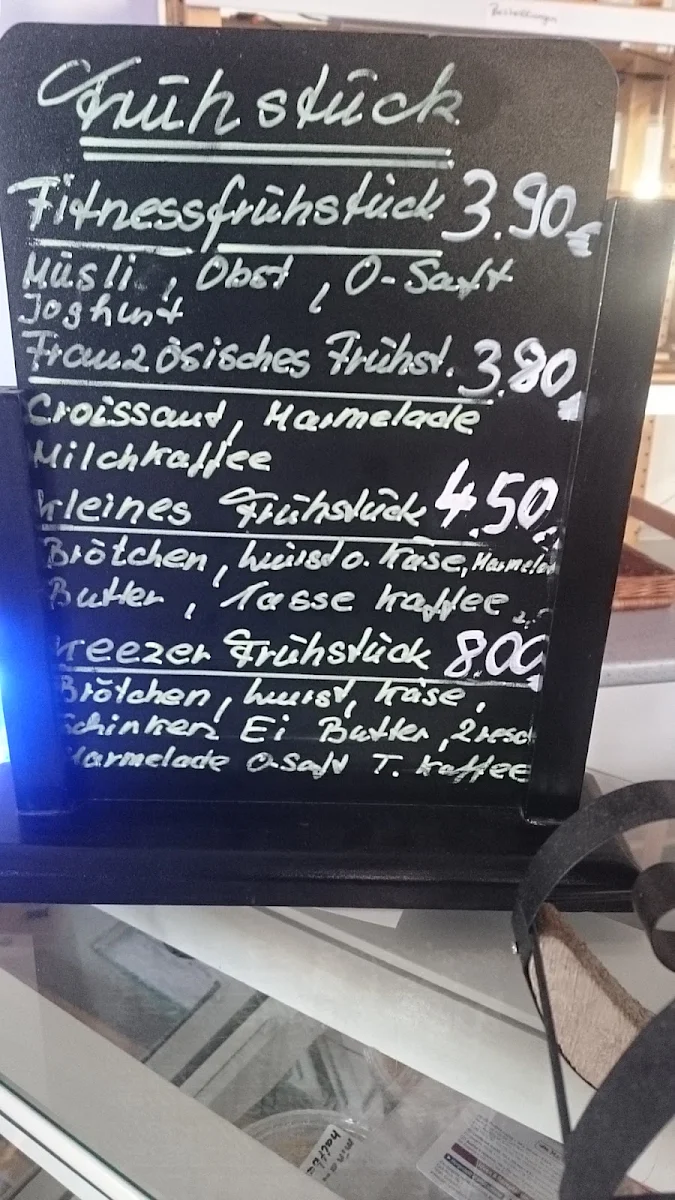 Bestellungen
Frühstück
Fitnessfrühstück 3.90€
Müsli, Obst, O-Saft
Joghurt
Französisches Frühst. 3.80
Croissant, Marmelade
Milchkaffee
kleines Frühstück 4.50
Brötchen, Wurst o. Käse, Marmelad
Butter, Tasse Kaffee
reezer Frühstück 8.00
Brötchen, Wurst, Käse,
Schinken Ei Butter,
Marmelade O-Saft T. Kaffee